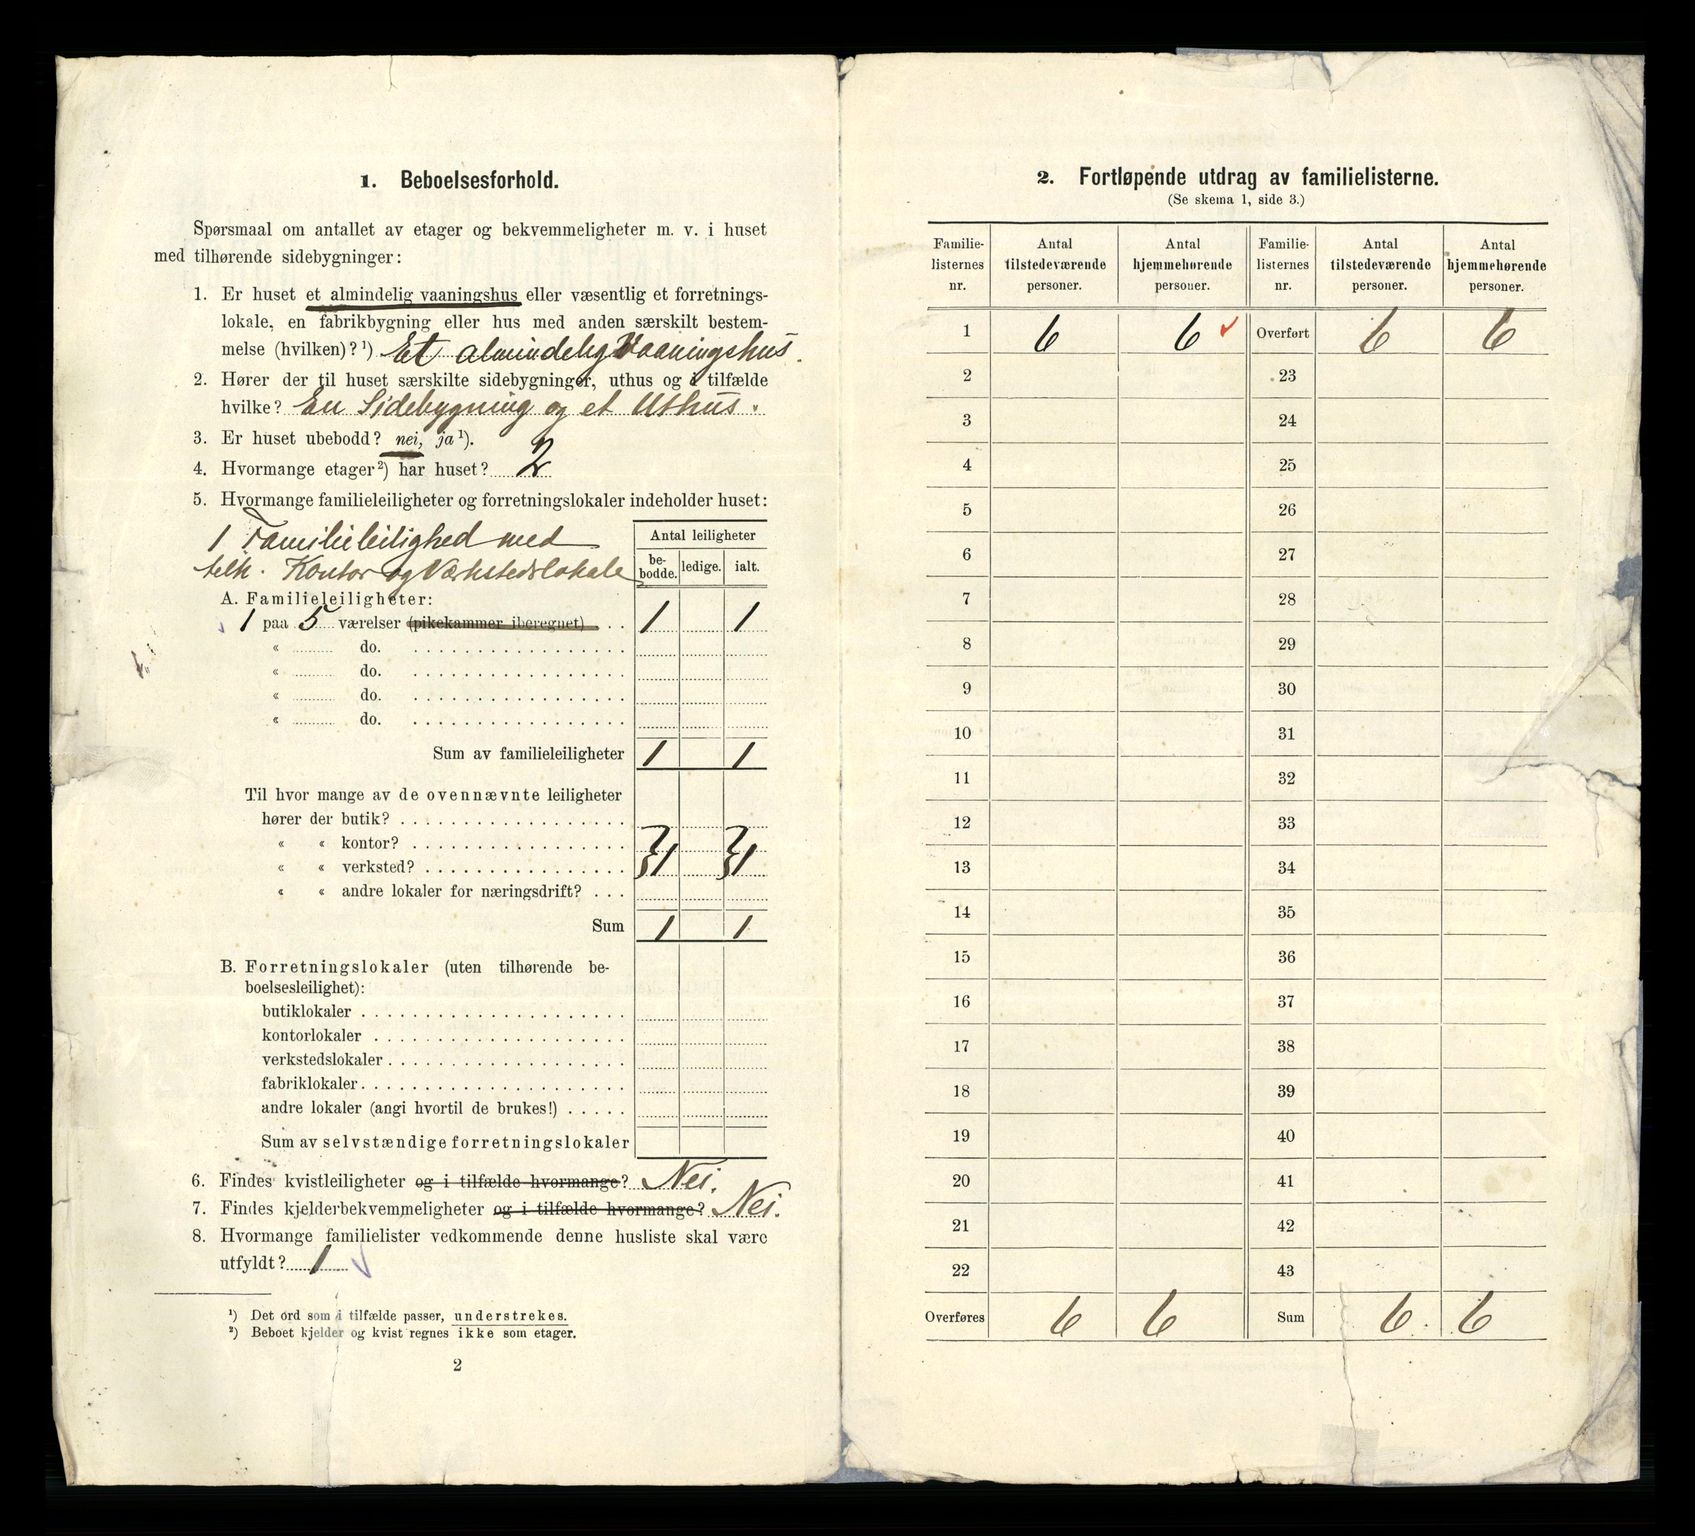 1. Beboelsesforhold.
Spørsmaal om antallet av etager og bekvemmeligheter m. v. i huset
med tilhørende sidebygninger:
1. Er huset et almindelig vaaningshus eller væsentlig et forretnings-
lokale, en fabrikbygning eller hus med anden særskilt bestem-
melse (hvilken)? ¹) Et almindelig Vaaningshus.
2. Hører der til huset særskilte sidebygninger, uthus og i tilfælde
hvilke? En Sidebygning og et Uthus.
3. Er huset ubebodd? nei, ja ¹).
4. Hvormange etager ²) har huset? 2
5. Hvormange familieleiligheter og forretningslokaler indeholder huset:
1 Familieleilighed med
Kontor og Værkstedslokale
Antal leiligheter
be-bodde. ledige. ialt.
A. Familieleiligheter:
1 paa 5 værelser (pikekammer iberegnet) . . 1 1
« do.
« do.
« do.
« do.
Sum av familieleiligheter 1 1
Til hvor mange av de ovennævnte leiligheter
hører der butik?
« « kontor?
« « verksted? } 1 } 1
« « andre lokaler for næringsdrift?
Sum 1 1
B. Forretningslokaler (uten tilhørende be-
boelsesleilighet):
butiklokaler
kontorlokaler
verkstedslokaler
fabriklokaler
andre lokaler (angi hvortil de brukes!)
Sum av selvstændige forretningslokaler
6. Findes kvistleiligheter og i tilfælde hvormange? Nei.
7. Findes kjelderbekvemmeligheter og i tilfælde hvormange? Nei.
8. Hvormange familielister vedkommende denne husliste skal være
utfyldt? 1
¹) Det ord som i tilfælde passer, understrekes.
²) Beboet kjelder og kvist regnes ikke som etager.
2
2. Fortløpende utdrag av familielisterne.
(Se skema 1, side 3.)
Familie- Antal Antal Familie- Antal Antal
listernes tilstedeværende hjemmehørende listernes tilstedeværende hjemmehørende
nr. personer. personer. nr. personer. personer.
1 6 6 Overført 6 6
2 23
3 24
4 25
5 26
6 27
7 28
8 29
9 30
10 31
11 32
12 33
13 34
14 35
15 36
16 37
17 38
18 39
19 40
20 41
21 42
22 43
Overføres 6 6 Sum 6 6